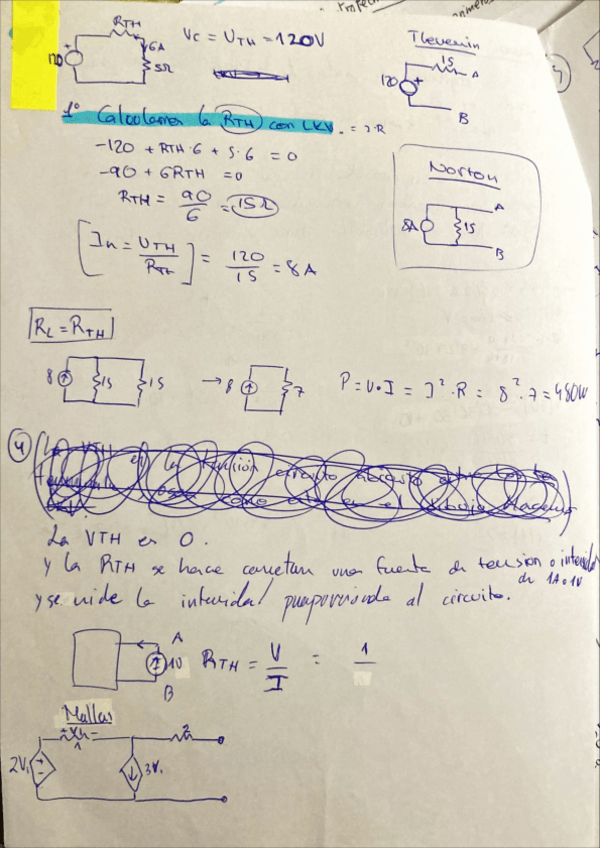 RTH
120
6A
5Ω
Vc = UTH = 120V
Thevenin
15
120
A
B
1º Calculamos la RTH con LKV. = I·R
-120 + RTH·6 + 5·6 = 0
-90 + 6RTH = 0
RTH = 90/6 = 15Ω
[In = UTH/RTH] = 120/15 = 8A
Norton
8A
15
A
B
RL = RTH
8
15
15
→ 8
7
P = V·I = I²·R = 8²·7 = 480W
4
La VTH es 0.
y la RTH se hace conectan una fuente de tension o intensidad
de 1A o 1V
y se mide la intensidad al circuito.
A
B
RTH = V/I = 1
Mallas
1
2
2V₁
3V₁